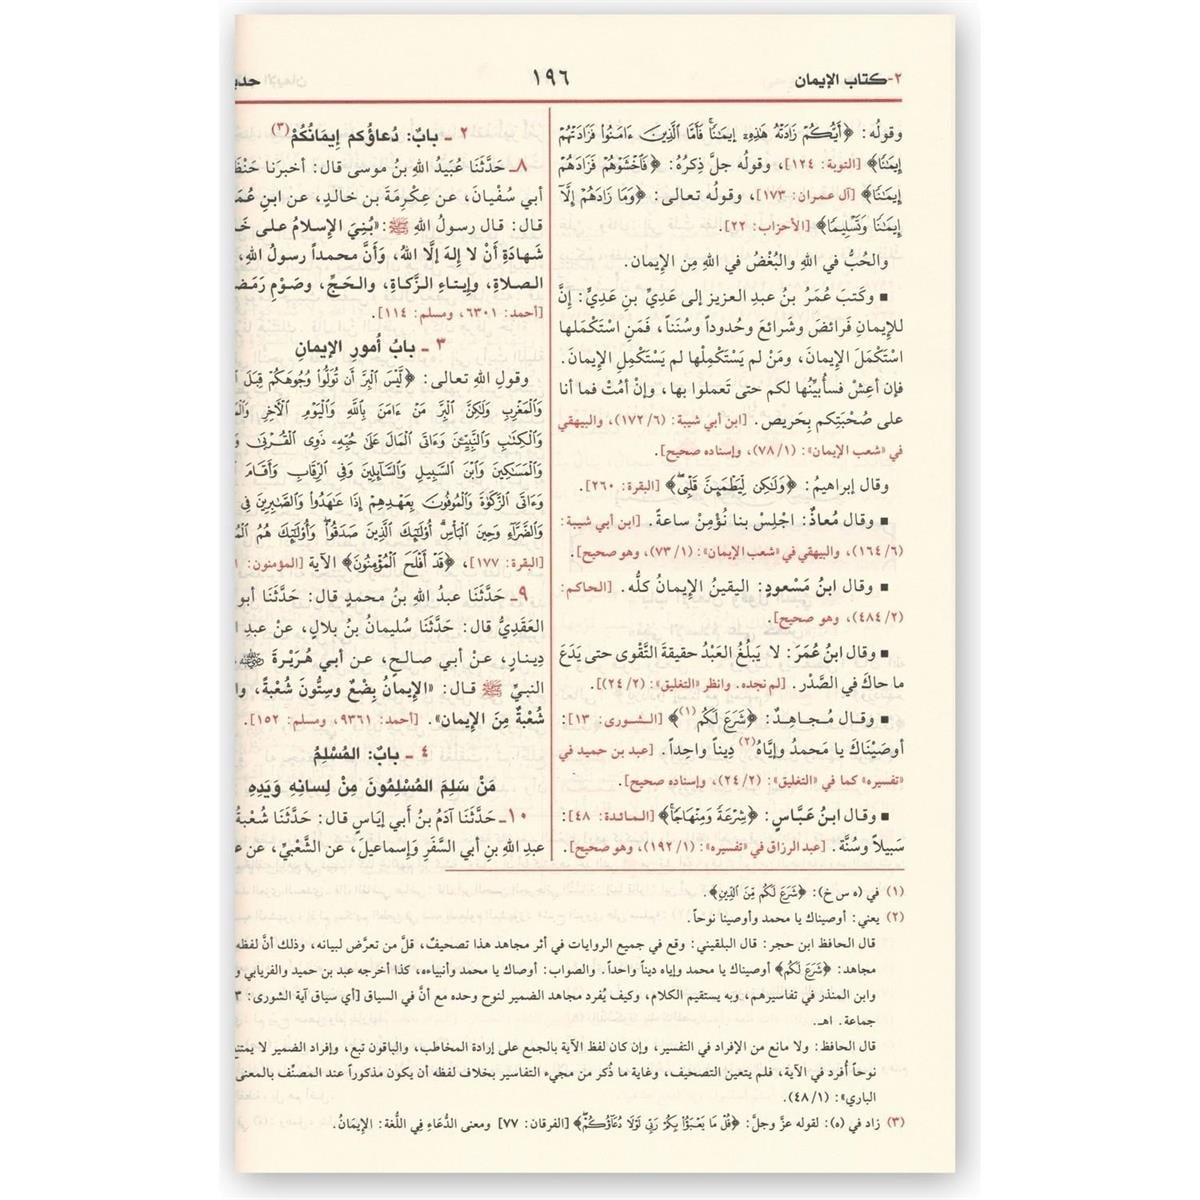 ٢-كتاب الإيمان
١٩٦
وقولُه: ﴿أَيُّكُمْ زَادَتْهُ هَذِهِۦ إِيمَٰنًا فَأَمَّا ٱلَّذِينَ ءَامَنُوا۟ فَزَادَتْهُمْ
إِيمَٰنًا﴾ [التوبة: ١٢٤]، وقولُه جلَّ ذِكرُهُ: ﴿فَٱخْشَوْهُمْ فَزَادَهُمْ
إِيمَٰنًا﴾ [آل عمران: ١٧٣]، وقولُه تعالى: ﴿وَمَا زَادَهُمْ إِلَّآ
إِيمَٰنًا وَتَسْلِيمًا﴾ [الأحزاب: ٢٢].
والحُبُّ في اللهِ والبُغْضُ في اللهِ مِن الإيمان.
■ وكتَبَ عُمَرُ بنُ عبدِ العزيز إلى عَدِيِّ بنِ عَدِيٍّ: إنَّ
للإيمانِ فَرائضَ وشَرائعَ وحُدوداً وسُنَناً، فَمَنِ اسْتَكْمَلها
اسْتَكْمَلَ الإيمانَ، ومَنْ لم يَسْتَكْمِلْها لم يَسْتَكْمِلِ الإيمانَ.
فإن أعِشْ فسأُبيِّنُها لكم حتى تَعملوا بها، وإنْ أمُتْ فما أنا
على صُحْبَتِكم بِحَريص. [ابن أبي شيبة: (٦/ ١٧٢)، والبيهقي
في «شعب الإيمان»: (١/ ٧٨)، وإسناده صحيح].
وقال إبراهيمُ: ﴿وَلَٰكِن لِّيَطْمَئِنَّ قَلْبِى﴾ [البقرة: ٢٦٠].
■ وقال مُعاذٌ: اجْلِسْ بنا نُؤْمِنْ ساعةً. [ابن أبي شيبة:
(٦/ ١٦٤)، والبيهقي في «شعب الإيمان»: (١/ ٧٣)، وهو صحيح].
■ وقال ابنُ مَسْعودٍ: اليقينُ الإيمانُ كلُّه. [الحاكم:
(٢/ ٤٨٤)، وهو صحيح].
■ وقال ابنُ عُمَرَ: لا يَبلُغُ العَبْدُ حقيقةَ التَّقْوى حتى يَدَعَ
ما حاكَ في الصَّدْر. [لم نجده. وانظر «التغليق»: (٢/ ٢٤)].
■ وقال مُجاهِدٌ: ﴿شَرَعَ لَكُم (١)﴾ [الشورى: ١٣]:
أوصَيْناكَ يا محمدُ وإيَّاهُ(٢) دِيناً واحِداً. [عبد بن حميد في
«تفسيره» كما في «التغليق»: (٢/ ٢٤)، وإسناده صحيح].
■ وقال ابنُ عبَّاسٍ: ﴿شِرْعَةً وَمِنْهَاجًا﴾ [المائدة: ٤٨]:
سَبيلاً وسُنَّة. [عبد الرزاق في «تفسيره»: (١/ ١٩٢)، وهو صحيح].
٢ ـ بابٌ: دُعاؤُكم إِيمَانُكُمْ(٣)
٨ـ حَدَّثَنَا عُبَيدُ اللهِ بنُ موسى قال: أخبرنا
أبي سُفْيانَ، عن عِكْرِمَةَ بنِ خالدٍ، عن ابنِ
قال: قال رسولُ اللهِ ﷺ: «بُنِيَ الإسلامُ على
شَهادَةِ أَنْ لا إلهَ إلَّا اللهُ، وَأَنَّ محمداً رسولُ اللهِ،
الصلاةِ، وإيتاءِ الزَّكاةِ، والحَجِّ، وصَوْمِ
[أحمد: ٦٣٠١، ومسلم: ١١٤].
٣ ـ بابُ أُمورِ الإيمانِ
وقولِ اللهِ تعالى: ﴿لَيْسَ ٱلْبِرَّ أَن تُوَلُّوا۟ وُجُوهَكُمْ قِبَلَ
وَٱلْمَغْرِبِ وَلَٰكِنَّ ٱلْبِرَّ مَنْ ءَامَنَ بِٱللَّهِ وَٱلْيَوْمِ ٱلْءَاخِرِ
وَٱلْكِتَٰبِ وَٱلنَّبِيِّۦنَ وَءَاتَى ٱلْمَالَ عَلَىٰ حُبِّهِۦ ذَوِى ٱلْقُرْبَىٰ
وَٱلْمَسَٰكِينَ وَٱبْنَ ٱلسَّبِيلِ وَٱلسَّآئِلِينَ وَفِى ٱلرِّقَابِ وَأَقَامَ
وَءَاتَى ٱلزَّكَوٰةَ وَٱلْمُوفُونَ بِعَهْدِهِمْ إِذَا عَٰهَدُوا۟ وَٱلصَّٰبِرِينَ فِى
وَٱلضَّرَّآءِ وَحِينَ ٱلْبَأْسِ أُو۟لَٰٓئِكَ ٱلَّذِينَ صَدَقُوا۟ وَأُو۟لَٰٓئِكَ هُمُ
[البقرة: ١٧٧]، ﴿قَدْ أَفْلَحَ ٱلْمُؤْمِنُونَ﴾ الآية [المؤمنون:
٩ـ حَدَّثَنَا عبدُ اللهِ بنُ محمدٍ قال: حَدَّثَنَا أبو
العَقَدِيُّ قال: حَدَّثَنَا سُليمانُ بنُ بلالٍ، عنْ عبدِ
دِينارٍ، عنْ أبي صالحٍ، عن أبي هُرَيْرةَ رضي الله عنه،
النبيِّ ﷺ قال: «الإيمانُ بِضْعٌ وسِتُّونَ شُعْبةً،
شُعْبةٌ مِنَ الإيمان». [أحمد: ٩٣٦١، ومسلم: ١٥٢].
٤ ـ بابٌ: المُسْلِمُ
مَنْ سَلِمَ المُسْلِمُونَ مِنْ لِسانِهِ وَيَدِهِ
١٠ـ حَدَّثَنَا آدَمُ بنُ أبي إياسٍ قال: حَدَّثَنَا شُعْبةُ
عبدِ اللهِ بنِ أبي السَّفَرِ وإسماعيلَ، عنِ الشَّعْبيِّ، عن
(١) في (ه س خ): ﴿شَرَعَ لَكُم مِّنَ ٱلدِّينِ﴾.
(٢) يعني: أوصيناك يا محمد وأوصينا نوحاً.
قال الحافظ ابن حجر: قال البلقيني: وقع في جميع الروايات في أثر مجاهد هذا تصحيفٌ، قلَّ من تعرَّض لبيانه، وذلك أنَّ لفظه
مجاهد: ﴿شَرَعَ لَكُم﴾ أوصيناك يا محمد وإياه ديناً واحداً. والصواب: أوصاك يا محمد وأنبياءه، كذا أخرجه عبد بن حميد والفريابي
وابن المنذر في تفاسيرهم، وبه يستقيم الكلام، وكيف يُفرد مجاهد الضمير لنوح وحده مع أنَّ في السياق [أي سياق آية الشورى:
جماعة. اهـ.
قال الحافظ: ولا مانع من الإفراد في التفسير، وإن كان لفظ الآية بالجمع على إرادة المخاطب، والباقون تبع، وإفراد الضمير لا
نوحاً أُفرد في الآية، فلم يتعين التصحيف، وغاية ما ذُكر من مجيء التفاسير بخلاف لفظه أن يكون مذكوراً عند المصنِّف بالمعنى
الباري»: (١/ ٤٨).
(٣) زاد في (ه): لقوله عزَّ وجلَّ: ﴿قُلْ مَا يَعْبَؤُا۟ بِكُمْ رَبِّى لَوْلَا دُعَآؤُكُمْ﴾ [الفرقان: ٧٧] ومعنى الدُّعَاءِ فِي اللُّغة: الإيمَانُ.